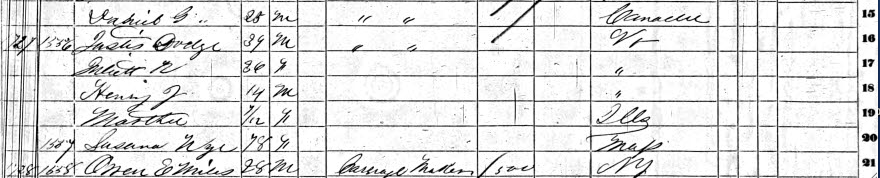 Daniel G. " 28 M " " Canada 15
727 1556 Justis Dodge 39 M " " Vt 16
Juliett R 36 F " 17
Henry J. 14 M " 18
Martha 7/12 F Ills 19
1557 Susana Nye 78 F Mass 20
728 1558 Owen E Miles 28 M Carriage Maker 1500 NY 21